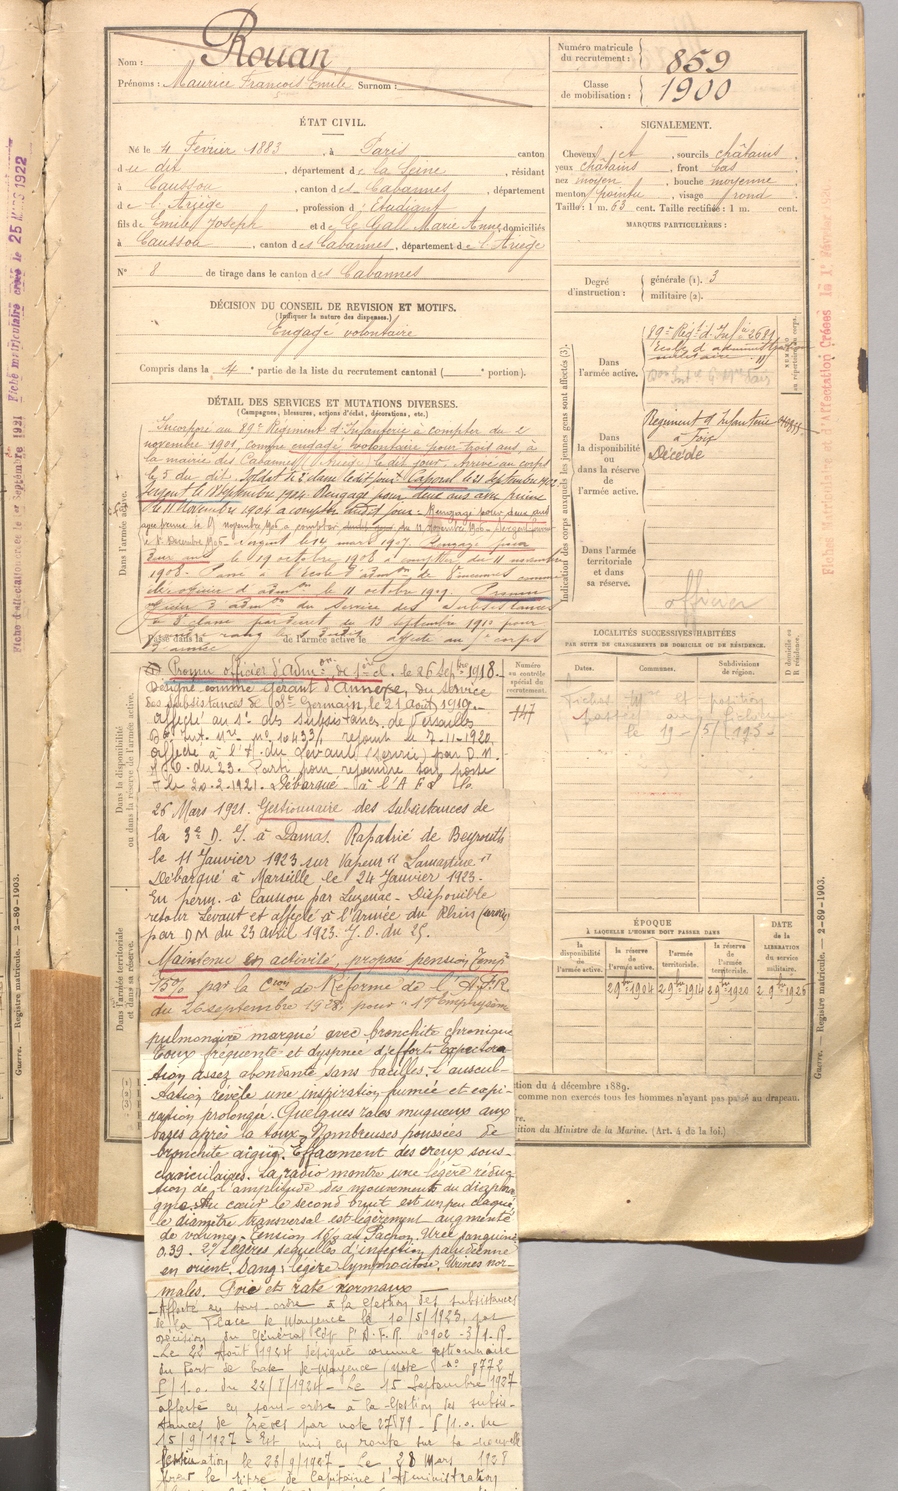 Nom : Rouan
Prénoms : Maurice François Emile Surnom :
Numéro matricule du recrutement : 859
Classe de mobilisation : 1900
ÉTAT CIVIL.
Né le 4 Février 1883, à Paris canton
dudit, département de la Seine, résidant
à Caussou, canton des Cabannes, département
de l'Ariège, profession d'Étudiant
fils de Emile Joseph et de Le Gall Marie Anne domiciliés
à Caussou, canton des Cabannes, département de l'Ariège
N° 8 de tirage dans le canton des Cabannes
DÉCISION DU CONSEIL DE REVISION ET MOTIFS.
(Indiquer la nature des dispenses.)
Engagé volontaire
Compris dans la 4e partie de la liste du recrutement cantonal ( e portion).
DÉTAIL DES SERVICES ET MUTATIONS DIVERSES.
(Campagnes, blessures, actions d'éclat, décorations, etc.)
Incorporé au 89e Régiment d'Infanterie à compter du 2
novembre 1901, comme engagé volontaire pour trois ans, à
la mairie des Cabannes (Ariège) le dit jour. Arrivé au corps
le 5 du dit. Soldat de 2e classe le dit jour. Caporal le 21 septembre 1902.
Sergent le septembre 1904. Rengagé pour deux ans avec prime
le 11 novembre 1904 à compter dudit jour. Rengagé pour deux ans
avec prime le novembre 1906 à compter du 11 novembre 1906. Sergent
le décembre 1906. Sergent le 14 mars 1907. Rengagé pour
deux ans le 19 octobre 1908 à compter du 11 novembre
1908. Passé à l'école d'admon de Vincennes comme
élève officier d'admon le 11 octobre 1909. Promu
officier d'admon du service des subsistances
de 3e classe par décret du 13 septembre 1910 pour
Passé dans la de l'armée active le affecté au corps
d'armée
Promu officier d'Admon de 1ère cl. le 26 septbre 1918.
Désigné comme Gérant d'Annexe du service
des subsistances de St Germain, le 21 août 1919.
Affecté au Sce des subsistances de Versailles
Bon Int. Mre n° 10433/ rejoint le 7-11-1920.
Affecté à l'A. du Levant (Syrie) par D.M.
J.O. du 23. Parti pour rejoindre son poste
le 20-2-1921. Débarqué à l'A F L le
26 Mars 1921. Gestionnaire des Subsistances de
la 3e D. I. à Damas. Rapatrié de Beyrouth
le 11 Janvier 1923 sur Vapeur "Lamartine"
Débarqué à Marseille le 24 Janvier 1923.
En perm. à Caussou par Luzenac. Disponible
retour Levant et affecté à l'Armée du Rhin (service)
par DM du 23 avril 1923. J.O. du 25.
Maintenu en activité, proposé pension tempre
15% par la Con de Réforme de l'A.F.R.
du 26 septembre 1928 pour "1° Emphysème
pulmonaire marqué avec bronchite chronique
Toux fréquente et dyspnée d'effort. Expectora
tion assez abondante sans bacilles. L'auscul-
tation révèle une inspiration humée et expi-
ration prolongée. Quelques râles muqueux aux
bases après la toux. Nombreuses poussées de
bronchite aiguë. Effacement des creux sous-
claviculaires. La radio montre une légère réduc
tion de l'amplitude des mouvements du diaphra
gme. Au cœur le second bruit est un peu claqué,
le diamètre transversal est légèrement augmenté
de volume. Tension au Pachon. Urée sanguine
0.39. 2° Légères séquelles d'infection paludéenne
en orient. Sang : légère lymphocitose. Urines nor-
males. Foie et rate normaux
Affecté en sous-ordre à la Gestion des subsistances
de la Place de Mayence le 10/5/1923, par
décision du Général Cdt l'A.F.R. n° 902-3/1.R.
Le 22 Août 1924 désigné comme gestionnaire
du Fort de base de Mayence (Note n° 8772
I/1.0. du 22/8/1924 - Le 15 Septembre 1927
affecté en sous-ordre à la Gestion des subsis-
tances de Trèves par note 27589 - I/1.0. du
15/9/1927 - Est mis en route sur sa nouvelle
destination le 26/9/1927 - Le 28 Mars 1928
prend le titre de Capitaine d'Administration
SIGNALEMENT.
Cheveux ct, sourcils châtains,
yeux châtains, front bas,
nez moyen, bouche moyenne
menton pointu, visage rond
Taille : 1 m. 63 cent. Taille rectifiée : 1 m. cent.
MARQUES PARTICULIÈRES :
Degré d'instruction : générale (1). 3
militaire (2).
Indication des corps auxquels les jeunes gens sont affectés (3).
Dans l'armée active.
89e Régt d'Infie 2681
Ecole d'administration
militaire
NUMÉRO au répertoire du corps.
Dans la disponibilité ou dans la réserve de l'armée active.
Régiment d'Infanterie
à Foix
Décédé
Dans l'armée territoriale et dans sa réserve.
officier
LOCALITÉS SUCCESSIVES HABITÉES
PAR SUITE DE CHANGEMENTS DE DOMICILE OU DE RÉSIDENCE.
Dates. Communes. Subdivisions de région. D domicile ou R résidence.
Fiches Mle et position
passées au fichier
le 19-/5/193
Numéro au contrôle spécial du recrutement.
447
ÉPOQUE
À LAQUELLE L'HOMME DOIT PASSER DANS
la disponibilité de l'armée active. la réserve de l'armée active. l'armée territoriale. la réserve de l'armée territoriale.
DATE de la LIBÉRATION du service militaire.
2 9bre 1904 2 9bre 1914 2 9bre 1920 2 9bre 1926
tion du 4 décembre 1889.
comme non exercés tous les hommes n'ayant pas passé au drapeau.
ition du Ministre de la Marine. (Art. 4 de la loi.)
Dans l'armée active.
Dans la disponibilité ou dans la réserve de l'armée active.
Dans l'armée territoriale et dans sa réserve.
(1)
(2)
(3)
Guerre. — Registre matricule. — 2-89-1903.
Guerre. — Registre matricule. — 2-89-1903.
Fiche matriculaire créée le 25 Mars 1922
Fiche d'affectation créée le Septembre 1921
Fiches Matriculaire et d'Affectation Créées le 1er Février